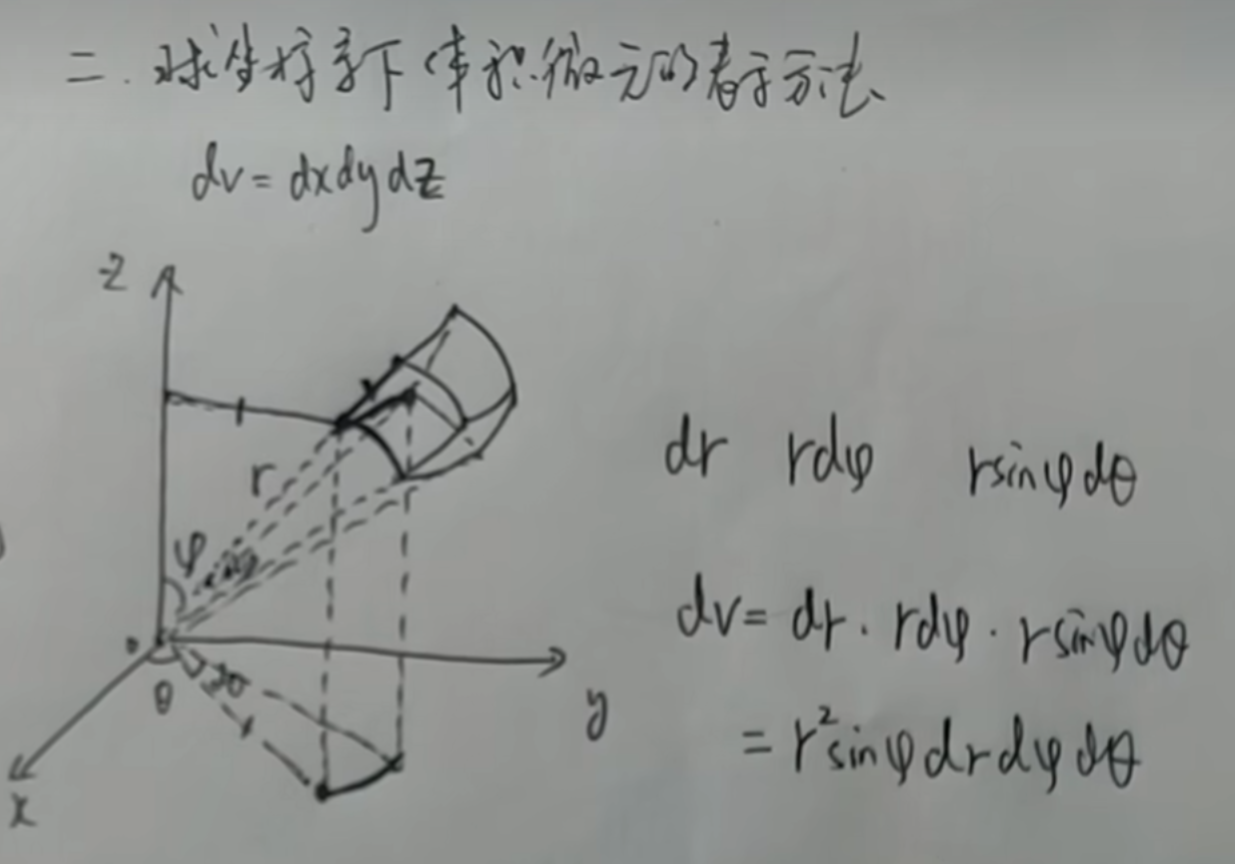 二.球坐标系下体积微元的表示方法
dv=dxdydz
z
r
φ
dr rdφ rsinφdθ
o
dv=dr·rdφ·rsinφdθ
θ
dθ
y
=r²sinφdrdφdθ
x